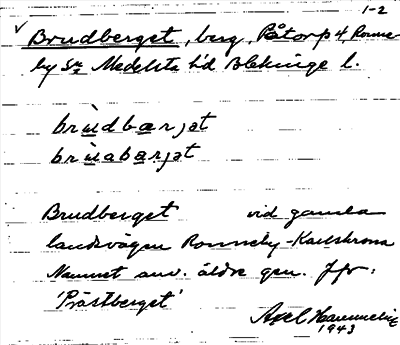 1-2
✓ Brudberget, berg, Påtorp 4, Ronne-
by Sn Medelsta hd Blekinge l.
brùdbærjət
brùabærjət
Brudberget vid gamla
landsvägen Ronneby-Karlskrona
Namnet anv. äldre gen. Jfr:
'Prästberget'
Axel
1943